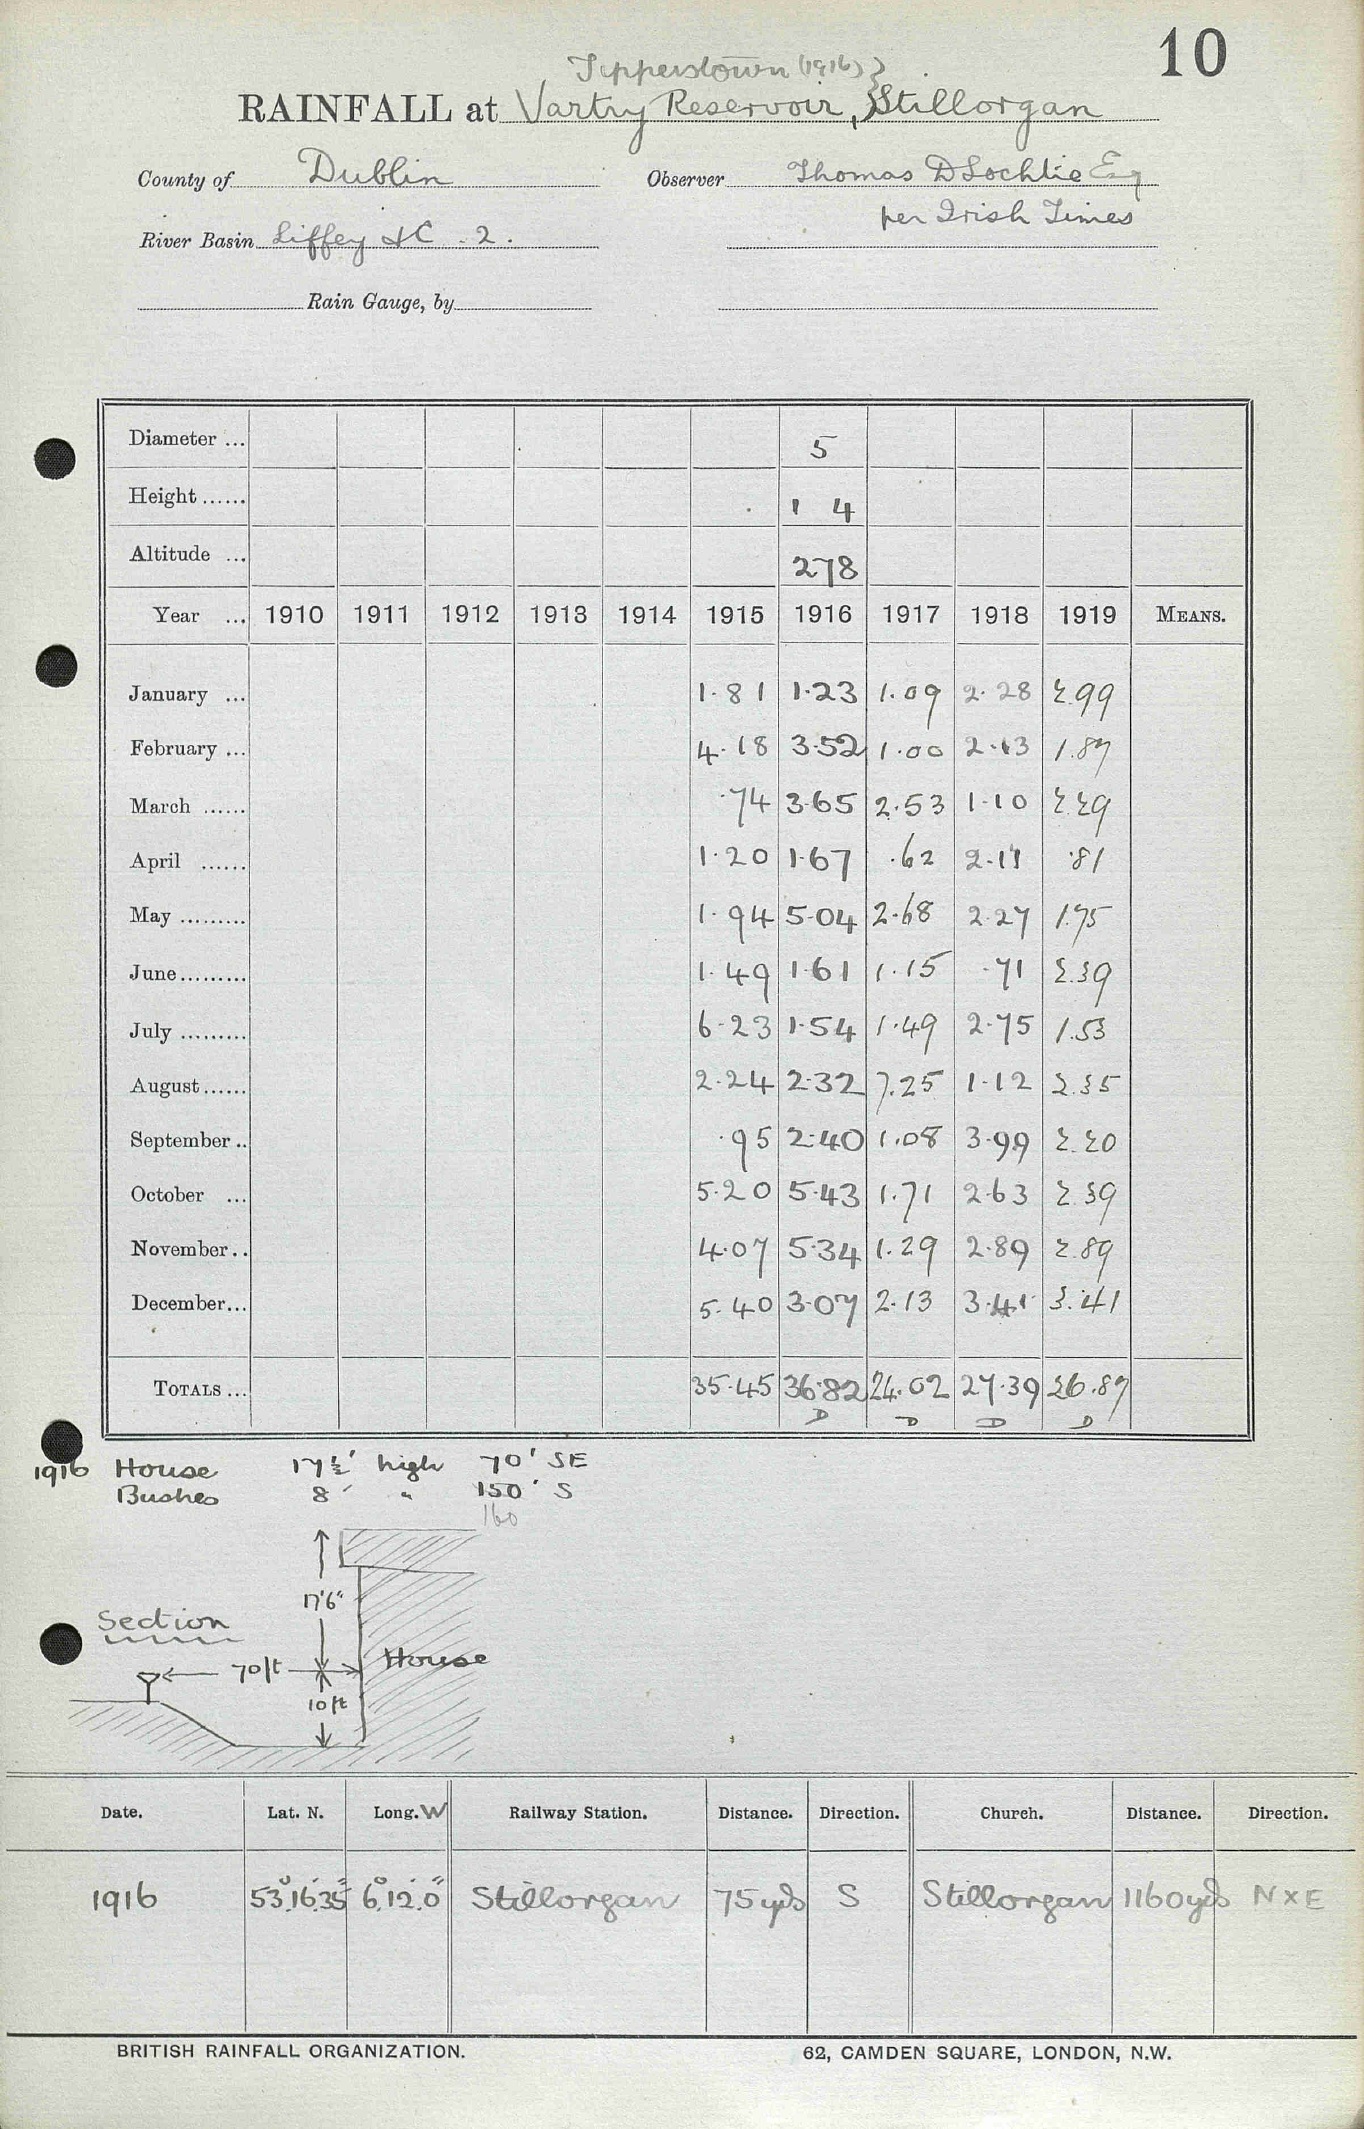 10
Tipperstown (1916)
RAINFALL at Vartry Reservoir, Stillorgan
County of Dublin Observer Thomas D Lochlie Esq
per Irish Times
River Basin Liffey &C. 2.
Rain Gauge, by
Diameter ... 5
Height ...... 1 4
Altitude ... 278
Year ... 1910 1911 1912 1913 1914 1915 1916 1917 1918 1919 MEANS.
January ... 1.81 1.23 1.09 2.28 2.99
February ... 4.18 3.52 1.00 2.13 1.87
March ...... .74 3.65 2.53 1.10 2.29
April ...... 1.20 1.67 .62 2.11 .81
May ......... 1.94 5.04 2.68 2.27 1.75
June ......... 1.49 1.61 1.15 .71 2.39
July ......... 6.23 1.54 1.49 2.75 1.53
August ...... 2.24 2.32 7.25 1.12 2.35
September .. .95 2.40 1.08 3.99 2.20
October ... 5.20 5.43 1.71 2.63 2.39
November .. 4.07 5.34 1.29 2.89 2.89
December ... 5.40 3.07 2.13 3.41 3.41
TOTALS ... 35.45 36.82 24.02 27.39 26.87
D D D D
1916 House 17½' high 70' SE
Bushes 8' " 150' S
160
17'6"
Section
70ft House
10ft
Date. Lat. N. Long. W Railway Station. Distance. Direction. Church. Distance. Direction.
1916 53°16'35" 6°12'0" Stillorgan 75 yds S Stillorgan 1160 yds N x E
BRITISH RAINFALL ORGANIZATION. 62, CAMDEN SQUARE, LONDON, N.W.